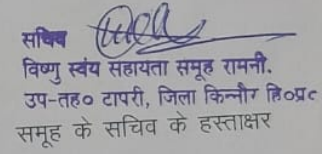 सचिव
विष्णु स्वंय सहायता समूह रामनी.
उप-तह० टापरी, जिला किन्नौर हि०प्र०
समूह के सचिव के हस्ताक्षर